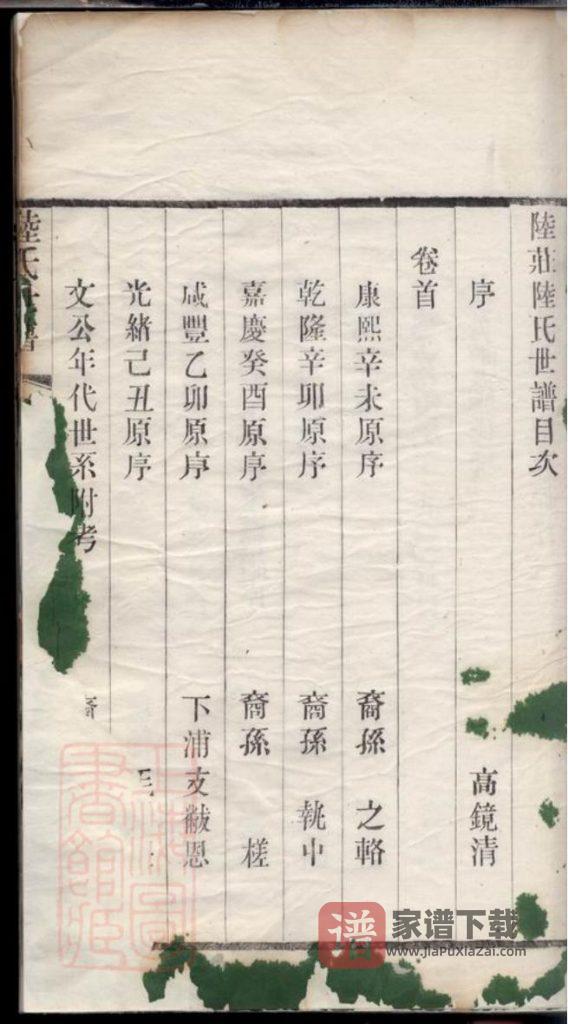 陸莊陸氏世譜目次
序 高鏡清
卷首
康熙辛未原序 裔孫 之輅
乾隆辛卯原序 裔孫 執中
嘉慶癸酉原序 裔孫 槎
咸豐乙卯原序 下浦支黻恩
光緒己丑原序
文公年代世系附考 裔
陸氏世譜
上海圖書館藏
譜 家谱下载
www.jiapuxiazai.com